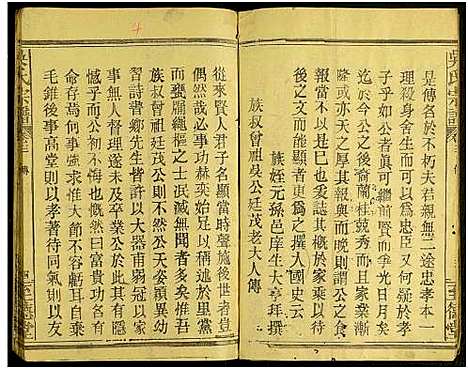 是傳名於不朽夫君親無二途忠孝本一
理殺身舍生而可以為忠臣又何疑於孝
子乎如公者真可繼前賢光爭日月矣
迄於今公之後裔蘭桂競秀而且家業漸
隆或亦天之厚其報與而晚則謂公之食
報當不止此姪於其族譜以家乘於事
後之文章之東觀之撰入國史云
族姪元孫邑庠生大亨拜撰
族叔曾祖吳公廷茂老大人傳
從來賢人君子名顯當時聲施後世者豈
然哉必事功赫奕始足以稱述於里黨
而甕牖繩樞之士泯滅無聞者多矣惟吾
族叔曾祖廷茂公則不然公天姿穎異幼
習詩書鄉先生皆許以大器甫弱冠以家
無人督理遂未及卒業公於此寧無隱
憾乎而公不悔也慨然曰富貴功名有
命存焉何事強求惟大節不容虧耳自棄
毛錐以後事高堂則以孝著待同氣則以友
吳氏宗譜
卷
傳
至德堂